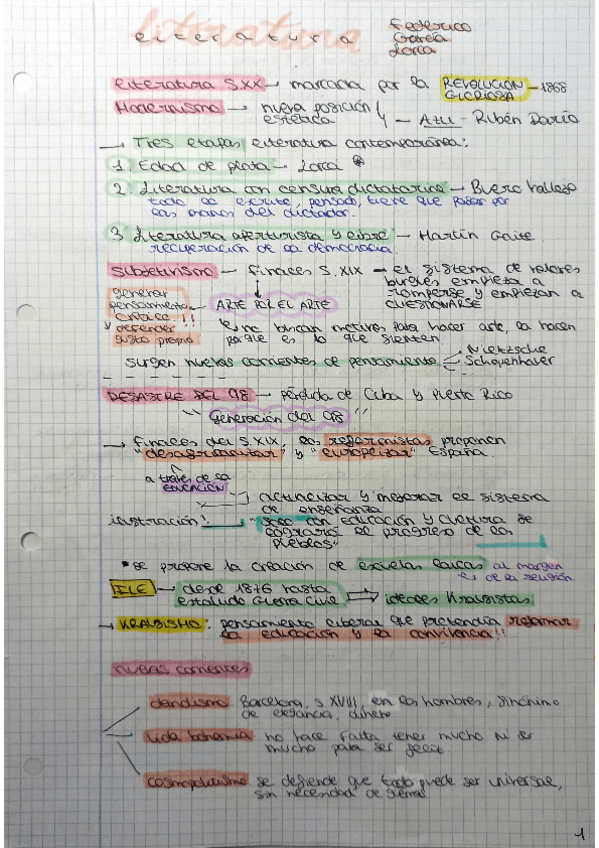 literatura
literatura
Federico
García
Lorca
Literatura S.XX → marcada por la REVOLUCIÓN GLORIOSA - 1868
Modernismo → nueva posición estética - Azul - Rubén Darío
→ Tres etapas literatura contemporánea:
1 Edad de plata - Lorca
2 Literatura con censura dictatorial - Buero Vallejo
todo lo escrito, pensado, tiene que pasar por
las manos del dictador.
3 Literatura aperturista y libre - Martín Gaite
recuperación de la democracia
Subjetivismo - finales S. XIX - el sistema de valores
burgués empieza a
romperse y empiezan a
cuestionarse
generar
pensamiento
crítico !!
y defender
gusto propio
ARTE POR EL ARTE
no buscan motivos para hacer arte, la hacen
porque es lo que sienten
surgen nuevas corrientes de pensamiento
Nietzsche
Schopenhauer
DESASTRE DEL 98 - pérdida de Cuba y Puerto Rico
" Generación del 98 "
→ finales del S.XIX, los reformistas proponen
"desafricanizar" y "europeizar" España.
a través de la
EDUCACIÓN
actualizar y mejorar el sistema
de enseñanza
ilustración! "solo con educación y cultura se
logrará el progreso de los
pueblos"
* se propone la creación de escuelas laicas al margen
de la religión
ILE → desde 1876 hasta
estallido Guerra Civil ⇒ ideales Krausistas
→ KRAUSISMO: pensamiento liberal que pretendía reformar
la educación y la convivencia!!
nuevas corrientes
dandismo Barcelona, S XVIII, en los hombres, sinónimo
de elegancia, dinero
vida bohemia no hace falta tener mucho ni ser
mucho para ser feliz
cosmopolitismo se defiende que todo puede ser universal,
sin necesidad de
1